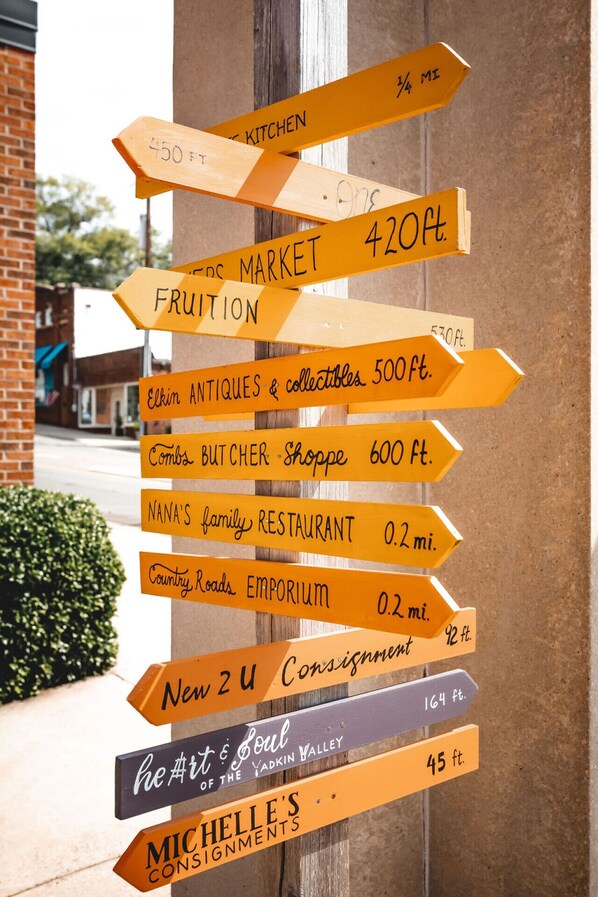 KITCHEN 1/4 MI
450 FT ONE
MARKET 420ft.
FRUITION 530 ft.
Elkin ANTIQUES & collectibles 500ft.
Combs BUTCHER Shoppe 600 ft.
NANA'S family RESTAURANT 0.2 mi.
Country Roads EMPORIUM 0.2 mi.
New 2 U Consignment 92 ft.
heArt & Soul 164 ft.
OF THE YADKIN VALLEY
MICHELLE'S 45 ft.
CONSIGNMENTS